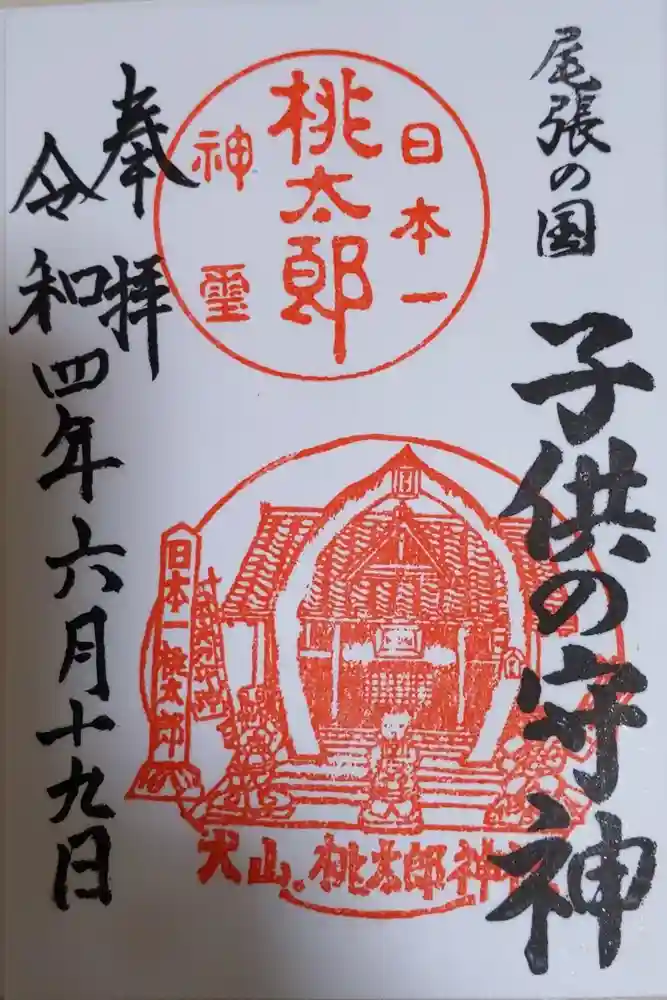 尾張の国
子供の守神
日本一
桃太郎
神璽
日本一桃太郎
犬山。桃太郎神
奉拝
令和四年六月十九日